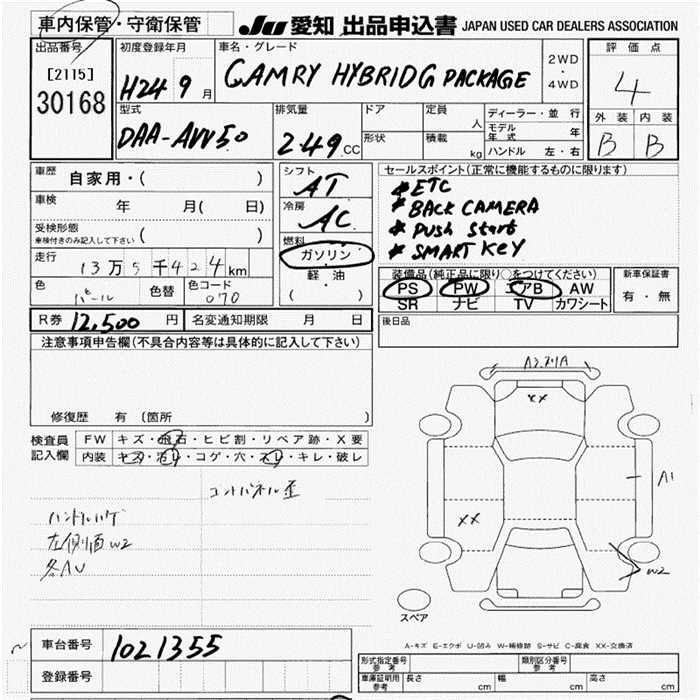 車内保管・守衛保管
JU 愛知 出品申込書 JAPAN USED CAR DEALERS ASSOCIATION
出品番号
[2115]
30168
初度登録年月
H24 9月
車名・グレード
CAMRY HYBRID G PACKAGE
2WD
・
4WD
評価点
4
外装 内装
B B
型式
DAA-AVV50
排気量
249cc
ドア
形状
定員 人
積載 kg
ディーラー・並行
モデル年式 年
ハンドル 左・右
車歴 自家用・( )
車検 年 月( 日)
受検形態
車検付きのみ記入して下さい ( )
走行 13万5千424km
色 パール 色替 色コード 070
シフト
AT
冷房
AC
燃料
ガソリン
軽油
( )
セールスポイント(正常に機能するものに限ります)
*ETC
*BACK CAMERA
*PUSH Start
*SMART KEY
装備品(純正品に限り○をつけてください)
PS PW エアB AW
SR ナビ TV カワシート
新車保証書
有・無
R券 12,500円 名変通知期限 月 日
後日品
注意事項申告欄(不具合内容等は具体的に記入して下さい)
修復歴 有 (箇所 )
検査員
記入欄
FW キズ・飛石・ヒビ割・リペア跡・X要
内装 キズ・汚レ・コゲ・穴・スレ・キレ・破レ
コントパネル歪
ハンドルハゲ
左側面W2
各AU
XX
XX
A1
W2
スペア
A-キズ E-エクボ U-凹み W-補修跡 S-サビ C-腐食 XX-交換済
車台番号 1021355
登録番号
形式指定番号
参考
類別区分番号
参考
車庫証明用
参考
長さ cm 幅 cm 高さ cm